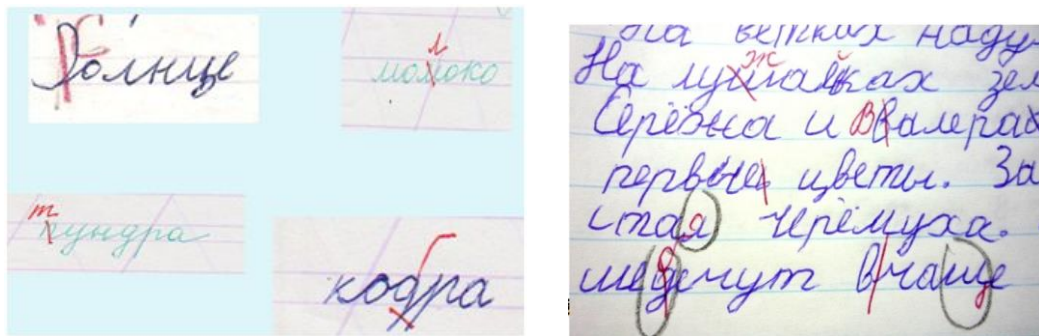 Солнце
л
момоко
т
пундра
кодра
На ветках наду
ж й
На лушайках зел
Серёжа и Валера
первые цветы. За
стая черёмуха.
в чаще